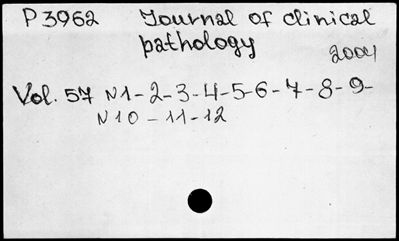 P3962 Journal of clinical
pathology
2004
Vol. 57 N1-2-3-4-5-6-7-8-9-
N10-11-12